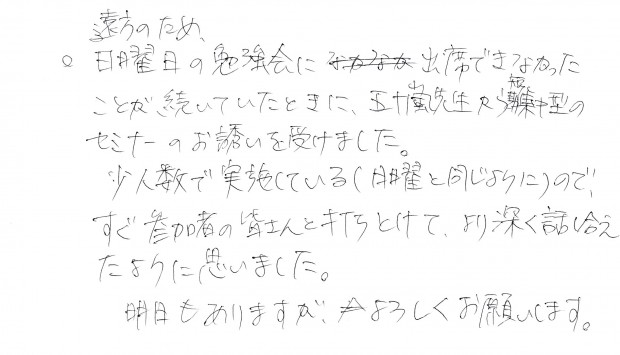 遠方のため、
○ 日曜日の勉強会になかなか出席できなかった
ことが続いていたときに、五十嵐先生から短期集中型の
セミナーのお誘いを受けました。
少人数で実施している(日曜と同じように)ので、
すぐ参加者の皆さんと打ちとけて、より深く話し合え
たように思いました。
明日もありますが、よろしくお願いします。